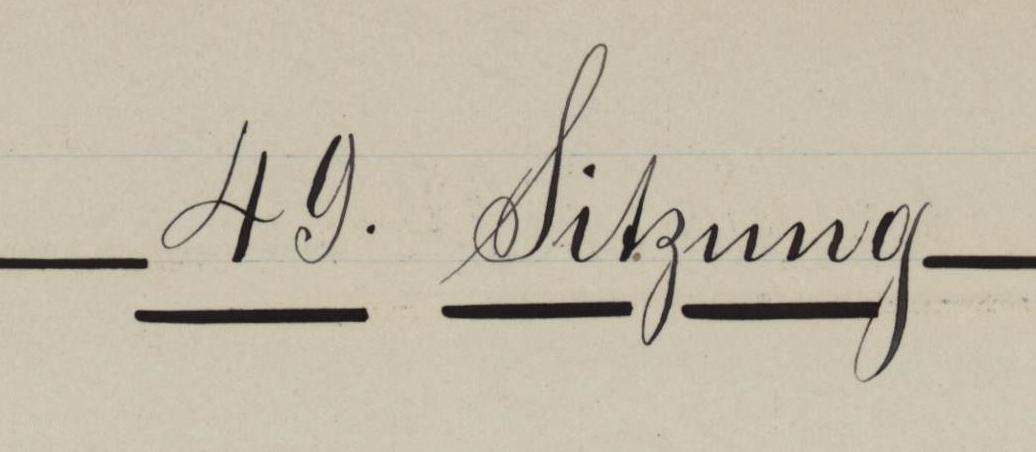 49. Sitzung